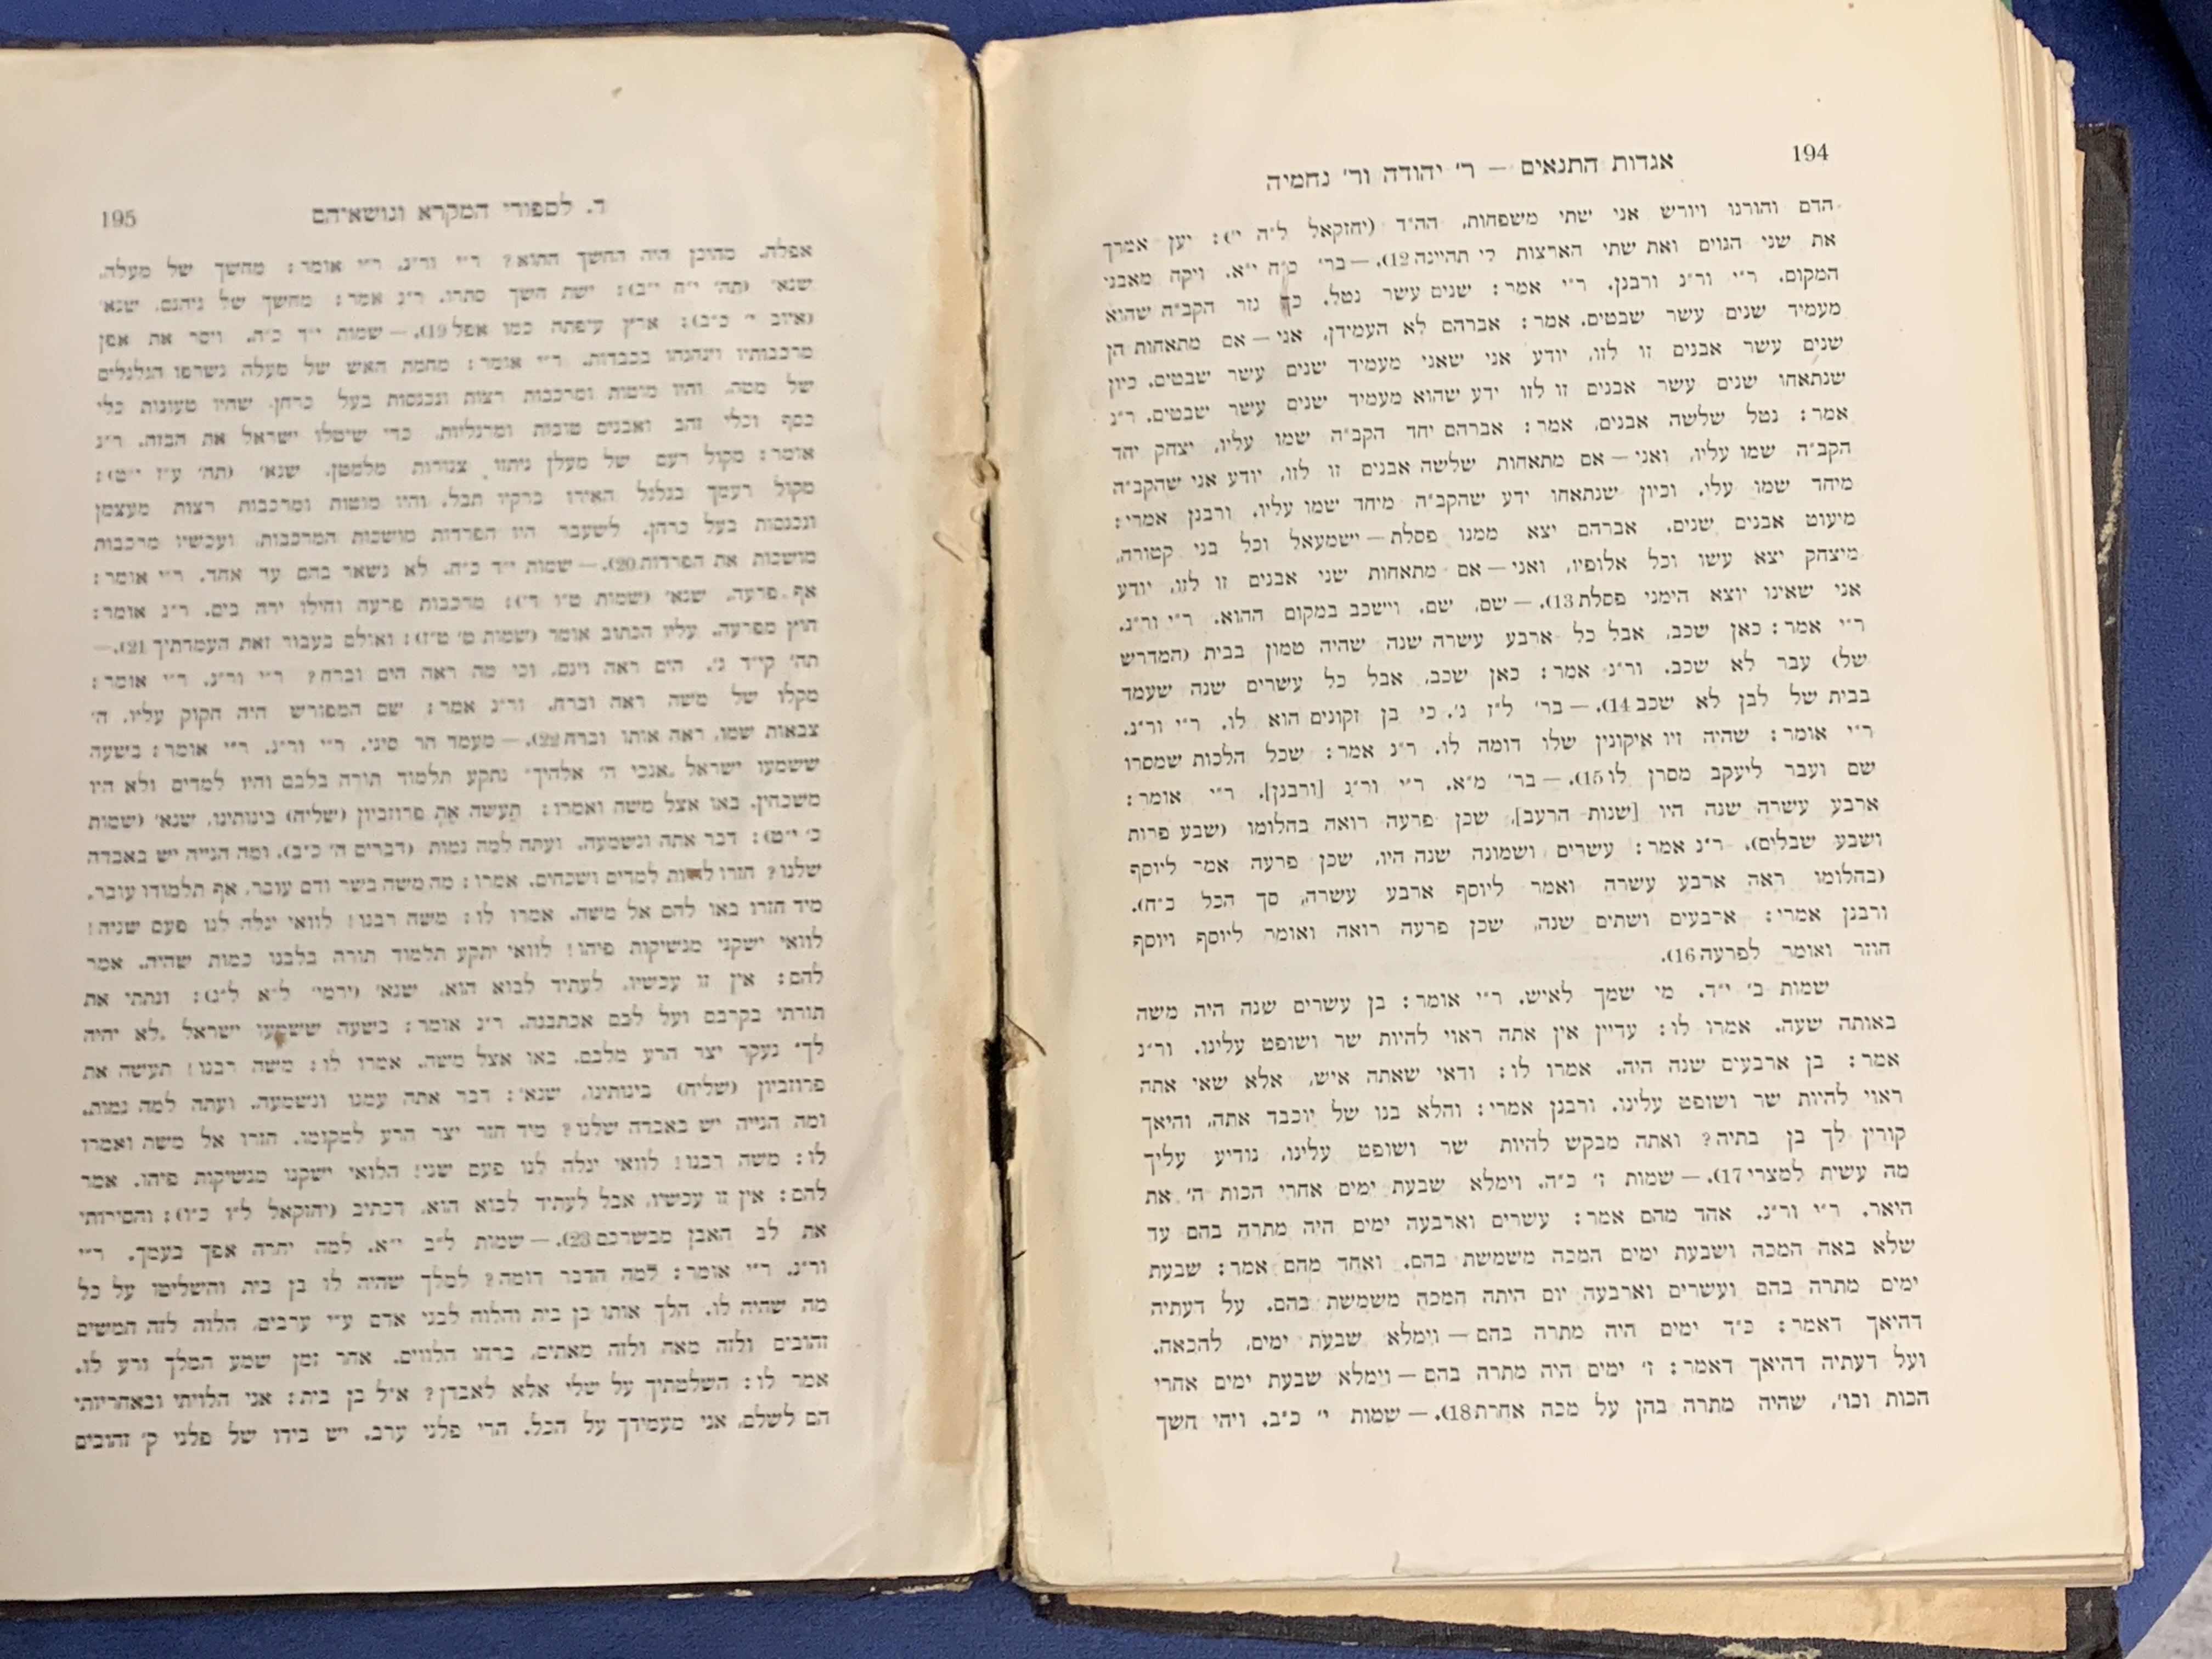 194
אגדות התנאים — ר׳ יהודה ור׳ נחמיה
הדם והורגו ויורש אני שתי משפחות, הה״ד (יחזקאל ל״ה י׳): יען אמרך
את שני הגוים ואת שתי הארצות לי תהיינה12). — בר׳ כ״ח י״א. ויקח מאבני
המקום. ר״י ור״נ ורבנן. ר״י אמר: שנים עשר נטל. כך גזר הקב״ה שהוא
מעמיד שנים עשר שבטים. אמר: אברהם לא העמידן, אני — אם מתאחות הן
שנים עשר אבנים זו לזו, יודע אני שאני מעמיד שנים עשר שבטים. כיון
שנתאחו שנים עשר אבנים זו לזו ידע שהוא מעמיד שנים עשר שבטים. ר״נ
אמר: נטל שלשה אבנים, אמר: אברהם יחד הקב״ה שמו עליו, יצחק יחד
הקב״ה שמו עליו, ואני — אם מתאחות שלשה אבנים זו לזו, יודע אני שהקב״ה
מיחד שמו עלי. וכיון שנתאחו ידע שהקב״ה מיחד שמו עליו. ורבנן אמרי:
מיעוט אבנים שנים. אברהם יצא ממנו פסלת — ישמעאל וכל בני קטורה,
מיצחק יצא עשו וכל אלופיו, ואני — אם מתאחות שני אבנים זו לזו, יודע
אני שאינו יוצא הימני פסלת13). — שם, שם. וישכב במקום ההוא. ר״י ור״נ.
ר״י אמר: כאן שכב, אבל כל ארבע עשרה שנה שהיה טמון בבית (המדרש
של) עבר לא שכב. ור״נ אמר: כאן שכב, אבל כל עשרים שנה שעמד
בבית של לבן לא שכב14). — בר׳ ל״ז ג׳. כי בן זקונים הוא לו. ר״י ור״נ.
ר״י אומר: שהיה זיו איקונין שלו דומה לו. ר״נ אמר: שכל הלכות שמסרו
שם ועבר ליעקב מסרן לו15). — בר׳ מ״א. ר״י ור״נ [ורבנן]. ר״י אומר:
ארבע עשרה שנה היו [שנות הרעב], שכן פרעה רואה בחלומו (שבע פרות
ושבע שבלים). ר״נ אמר: עשרים ושמונה שנה היו, שכן פרעה אמר ליוסף
(בחלומו ראה ארבע עשרה ואמר ליוסף ארבע עשרה, סך הכל כ״ח).
ורבנן אמרי: ארבעים ושתים שנה, שכן פרעה רואה ואומר ליוסף ויוסף
חוזר ואומר לפרעה16).
שמות ב׳ י״ד. מי שמך לאיש. ר״י אומר: בן עשרים שנה היה משה
באותה שעה. אמרו לו: עדיין אין אתה ראוי להיות שר ושופט עלינו. ור״נ
אמר: בן ארבעים שנה היה. אמרו לו: ודאי שאתה איש, אלא שאי אתה
ראוי להיות שר ושופט עלינו. ורבנן אמרי: והלא בנו של יוכבד אתה, והיאך
קורין לך בן בתיה? ואתה מבקש להיות שר ושופט עלינו, נודיע עליך
מה עשית למצרי17). — שמות ז׳ כ״ה. וימלא שבעת ימים אחרי הכות ה׳ את
היאר. ר״י ור״נ. אחד מהם אמר: עשרים וארבעה ימים היה מתרה בהם עד
שלא באה המכה ושבעת ימים המכה משמשת בהם. ואחד מהם אמר: שבעת
ימים מתרה בהם ועשרים וארבעה יום היתה המכה משמשת בהם. על דעתיה
דהיאך דאמר: כ״ד ימים היה מתרה בהם — וימלא שבעת ימים, להכאה.
ועל דעתיה דהיאך דאמר: ז׳ ימים היה מתרה בהם — וימלא שבעת ימים אחרי
הכות וכו׳, שהיה מתרה בהן על מכה אחרת18). — שמות י׳ כ״ב. ויהי חשך
ד. לספורי המקרא ונושאיהם
195
אפלה. מהיכן היה החשך ההוא? ר״י ור״נ. ר״י אומר: מחשך של מעלה,
שנא׳ (תה׳ י״ח י״ב): ישת חשך סתרו. ר״נ אמר: מחשך של גיהנם, שנא׳
(איוב י׳ כ״ב): ארץ עיפתה כמו אפל19). — שמות י״ד כ״ה. ויסר את אפן
מרכבותיו וינהגהו בכבדות. ר״י אומר: מחמת האש של מעלה נשרפו הגלגלים
של מטה, והיו מוטות ומרכבות רצות ונכנסות בעל כרחן, שהיו טעונות כלי
כסף וכלי זהב ואבנים טובות ומרגליות, כדי שיטלו ישראל את הבזה. ר״נ
אומר: מקול רעם של מעלן ניתזו צנורות מלמטן, שנא׳ (תה׳ ע״ז י״ט):
מקול רעמך בגלגל האירו ברקיו תבל, והיו מוטות ומרכבות רצות מעצמן
ונכנסות בעל כרחן. לשעבר היו הפרדות מושכות המרכבות, ועכשיו מרכבות
מושכות את הפרדות20). — שמות י״ד כ״ח. לא נשאר בהם עד אחד. ר״י אומר:
אף פרעה, שנא׳ (שמות ט״ו ד׳): מרכבות פרעה וחילו ירה בים. ר״נ אומר:
חוץ מפרעה. עליו הכתוב אומר (שמות ט׳ ט״ז): ואולם בעבור זאת העמדתיך21). —
תה׳ קי״ד ג׳. הים ראה וינס, וכי מה ראה הים וברח? ר״י ור״נ. ר״י אומר:
מקלו של משה ראה וברח. ור״נ אמר: שם המפורש היה חקוק עליו, ה׳
צבאות שמו, ראה אותו וברח22). — מעמד הר סיני. ר״י ור״נ. ר״י אומר: בשעה
ששמעו ישראל „אנכי ה׳ אלהיך״ נתקע תלמוד תורה בלבם והיו למדים ולא היו
משכחין. באו אצל משה ואמרו: תעשה את פרוזביון (שליח) בינותינו, שנא׳ (שמות
כ׳ י״ט): דבר אתה ונשמעה. ועתה למה נמות (דברים ה׳ כ״ב). ומה הנייה יש באבדה
שלנו? חזרו להיות למדים ושכחים. אמרו: מה משה בשר ודם עובר, אף תלמודו עובר.
מיד חזרו באו להם אל משה. אמרו לו: משה רבנו! לוואי יגלה לנו פעם שניה!
לוואי ישקני מנשיקות פיהו! לוואי יתקע תלמוד תורה בלבנו כמות שהיה. אמר
להם: אין זו עכשיו, לעתיד לבוא הוא, שנא׳ (ירמי׳ ל״א ל״ג): ונתתי את
תורתי בקרבם ועל לבם אכתבנה. ר״נ אומר: בשעה ששמעו ישראל „לא יהיה
לך״ נעקר יצר הרע מלבם. באו אצל משה. אמרו לו: משה רבנו! תעשה את
פרוזביון (שליח) בינותינו, שנא׳: דבר אתה עמנו ונשמעה. ועתה למה נמות.
ומה הנייה יש באבדה שלנו? מיד חזר יצר הרע למקומו. חזרו אל משה ואמרו
לו: משה רבנו! לוואי יגלה לנו פעם שני! הלואי ישקנו מנשיקות פיהו. אמר
להם: אין זו עכשיו, אבל לעתיד לבוא הוא, דכתיב (יחזקאל ל״ו כ״ו): והסירותי
את לב האבן מבשרכם23). — שמות ל״ב י״א. למה יחרה אפך בעמך. ר״י
ור״נ. ר״י אומר: למה הדבר דומה? למלך שהיה לו בן בית והשליטו על כל
מה שהיה לו. הלך אותו בן בית והלוה לבני אדם ע״י ערבים, הלוה לזה חמשים
זהובים ולזה מאה ולזה מאתים, ברחו הלווים. אחר זמן שמע המלך ורע לו.
אמר לו: השלטתיך על שלי אלא לאבדן? א״ל בן בית: אני הלויתי ובאחריותי
הם לשלם, אני מעמידך על הכל. הרי פלני ערב, יש בידו של פלני ק׳ זהובים